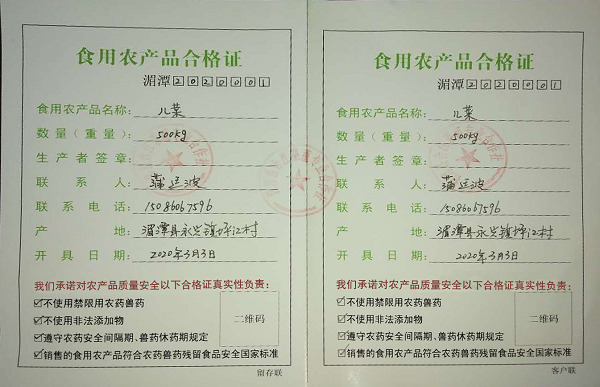 食用农产品合格证
湄潭2020001
食用农产品名称：儿菜
数量（重量）：500kg
生产者签章：
联系人：蒲廷波
联系电话：15086067596
产地：湄潭县永兴镇坪江村
开具日期：2020年3月3日
我们承诺对农产品质量安全以下合格证真实性负责：
☑不使用禁限用农药兽药
☑不使用非法添加物
☑遵守农药安全间隔期、兽药休药期规定
☑销售的食用农产品符合农药兽药残留食品安全国家标准
二维码
留存联
食用农产品合格证
湄潭2020001
食用农产品名称：儿菜
数量（重量）：500kg
生产者签章：
联系人：蒲廷波
联系电话：15086067596
产地：湄潭县永兴镇坪江村
开具日期：2020年3月3日
我们承诺对农产品质量安全以下合格证真实性负责：
☑不使用禁限用农药兽药
☑不使用非法添加物
☑遵守农药安全间隔期、兽药休药期规定
☑销售的食用农产品符合农药兽药残留食品安全国家标准
二维码
客户联